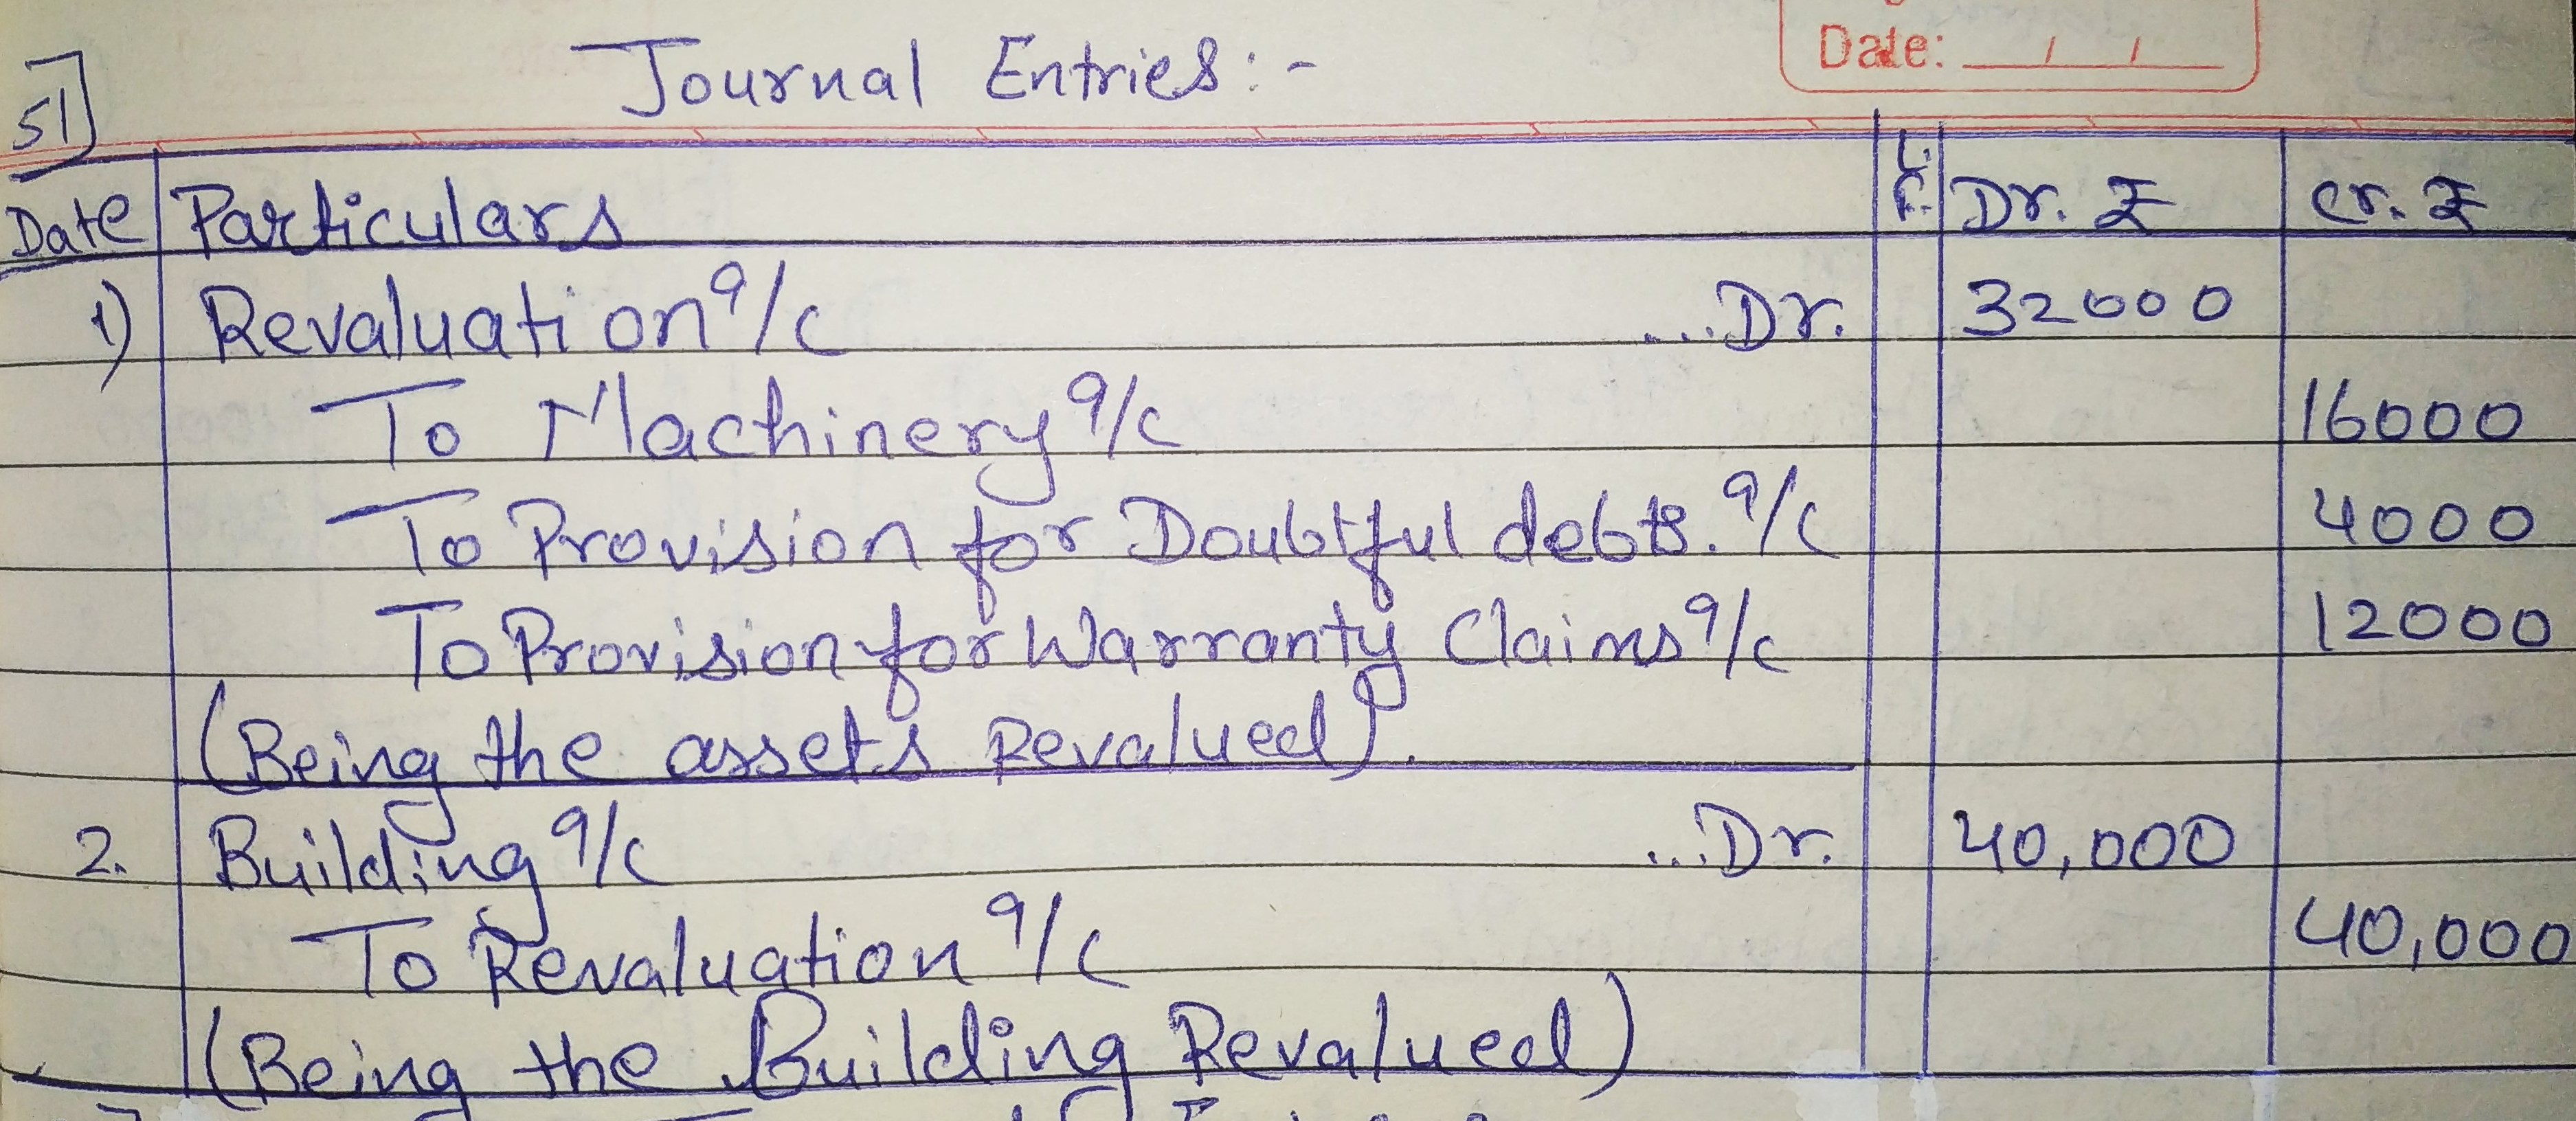 Date: / /
51]
Journal Entries:-
Date Particulars L.F. Dr. ₹ Cr. ₹
1) Revaluation a/c ...Dr. 32000
To Machinery a/c 16000
To Provision for Doubtful debts. a/c 4000
To Provision for Warranty Claims a/c 12000
(Being the assets Revalued).
2. Building a/c ...Dr. 40,000
To Revaluation a/c 40,000
(Being the Building Revalued)